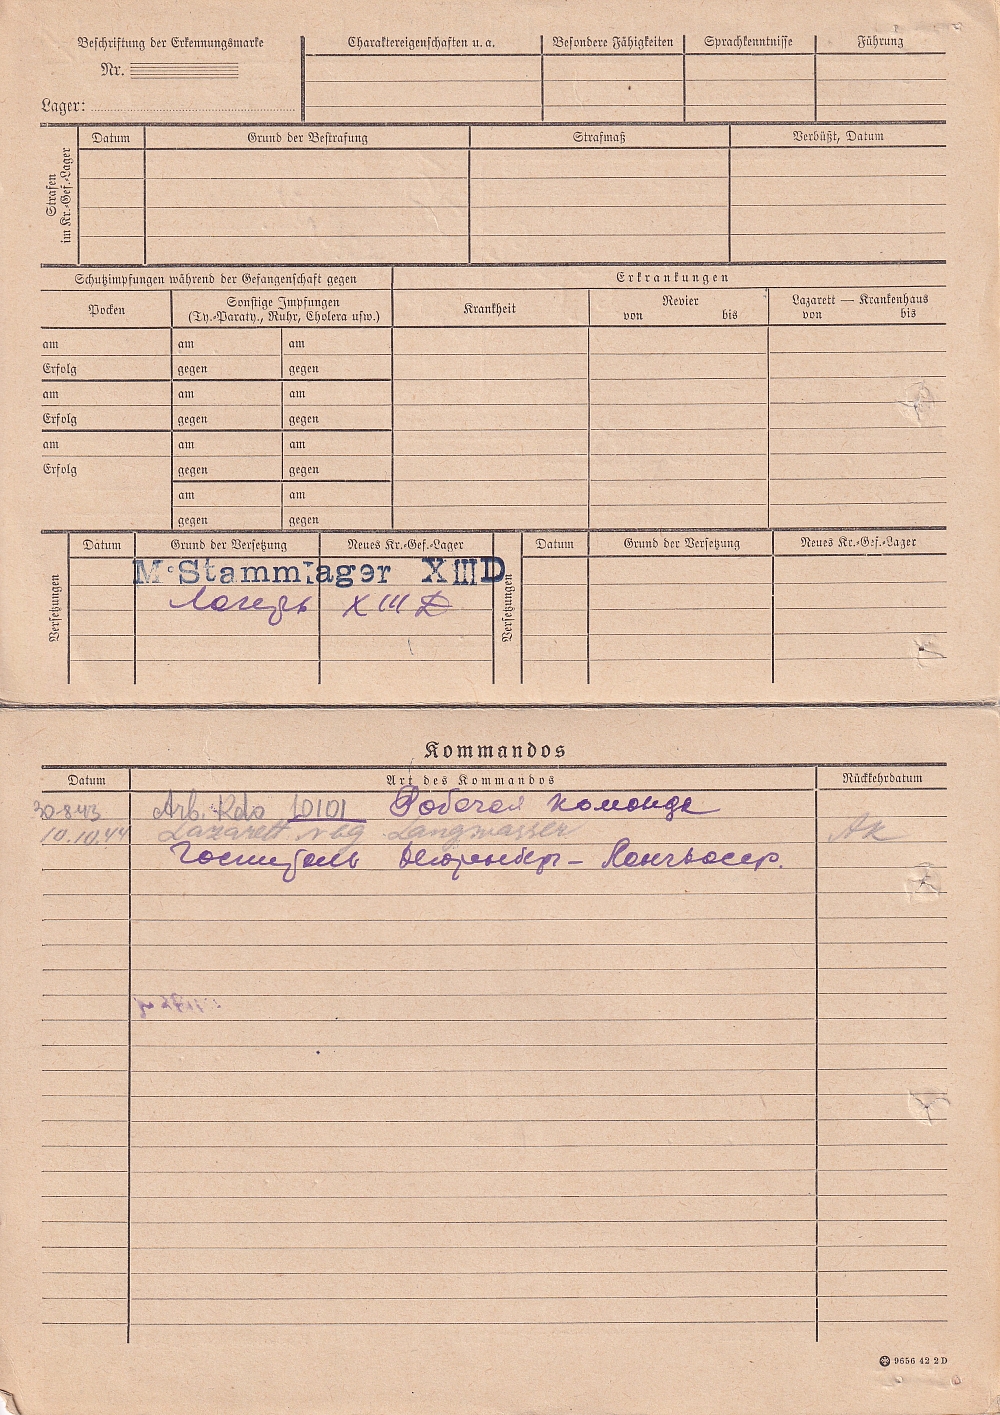 Beschriftung der Erkennungsmarke
Nr.
Lager:
Charaktereigenschaften u. a.
Besondere Fähigkeiten
Sprachkenntnisse
Führung
Strafen im Kr.-Gef.-Lager
Datum
Grund der Bestrafung
Strafmaß
Verbüßt, Datum
Schutzimpfungen während der Gefangenschaft gegen
Erkrankungen
Pocken
Sonstige Impfungen
(Ty.-Paraty., Ruhr, Cholera usw.)
Krankheit
Revier
von bis
Lazarett — Krankenhaus
von bis
am am am
Erfolg gegen gegen
am am am
Erfolg gegen gegen
am am am
Erfolg gegen gegen
am am
gegen gegen
Versetzungen
Datum Grund der Versetzung Neues Kr.-Gef.-Lager
Versetzungen
Datum Grund der Versetzung Neues Kr.-Gef.-Lager
M-Stammlager XIII D
Лагерь XIII D
Kommandos
Datum Art des Kommandos Rückkehrdatum
30.8.43 Arb. Kdo 10101 Рабочая команда
10.10.44 Lazarett Nbg Langwasser
Госпиталь Нюренберг - Лангвасер.
9656 42 2 D